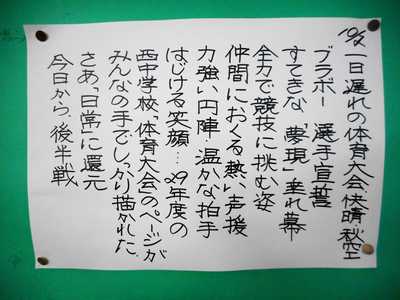 10/2 一日遅れの体育大会、快晴 秋空
ブラボー 選手宣誓
すてきな「夢現」垂れ幕
全力で競技に挑む姿
仲間におくる熱い声援
力強い円陣・温かな拍手
はじける笑顔…29年度の
西中学校「体育大会」のページが
みんなの手でしっかり描かれた
さあ、「日常」に還元
今日から、後半戦